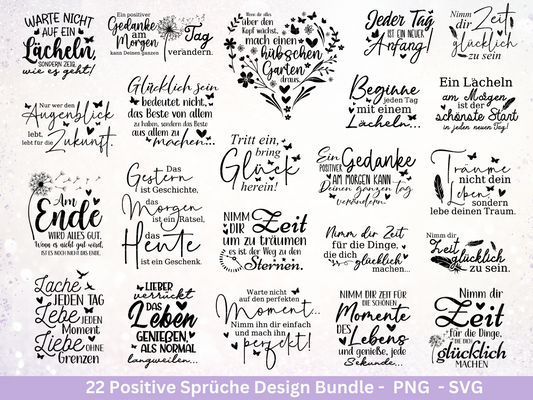 WARTE NICHT
AUF EIN
Lächeln,
SONDERN ZEIG,
wie es geht!
Ein positiver
Gedanke
am
Morgen
kann Deinen ganzen
Tag
verändern.
Wenn dir alles
über den
Kopf wächst,
mach einen
hübschen
Garten
draus.
Jeder Tag
IST EIN NEUER
Anfang!
Nimm
dir Zeit
glücklich
zu sein
Nur wer den
Augenblick
lebt,
lebt für die
Zukunft.
Glücklich sein
bedeutet nicht,
das Beste von allem
zu haben, sondern das Beste
aus allem zu
machen...
Beginne
jeden Tag
mit einem
Lächeln...
Ein Lächeln
am Morgen
ist der
schönste Start
in jeden neuen Tag!
Am
Ende
WIRD ALLES GUT.
Wenn es nicht gut wird,
IST ES NOCH NICHT DAS ENDE.
Das
Gestern
ist Geschichte,
das
Morgen
ist ein Rätsel,
das
Heute
ist ein Geschenk.
Tritt ein,
bring
Glück
herein!
Ein
POSITIVER
Gedanke
AM MORGEN KANN
Deinen ganzen tag
verändern.
Träume
nicht dein
Leben,
sondern
lebe deinen Traum.
NIMM
DIR Zeit
UM ZU TRÄUMEN
es ist der Weg zu den
Sternen.
Nimm dir Zeit
für die Dinge,
die dich
glücklich
machen...
Nimm dir
Zeit
glücklich
zu sein.
Lache
JEDEN TAG
Lebe JEDEN
Moment
Liebe OHNE
Grenzen
LIEBER
verrückt
DAS
Leben
GENIEßEN,
ALS NORMAL
langweilen...
Warte nicht
auf den perfekten
Moment...
Nimm ihn dir einfach
und mach ihn
perfekt!
NIMM DIR ZEIT FÜR
DIE SCHÖNEN
Momente
DES
Lebens
und genieße, jede
Sekunde...
Nimm dir
Zeit
für die Dinge,
DIE DICH
glücklich
MACHEN
22 Positive Sprüche Design Bundle - PNG - SVG